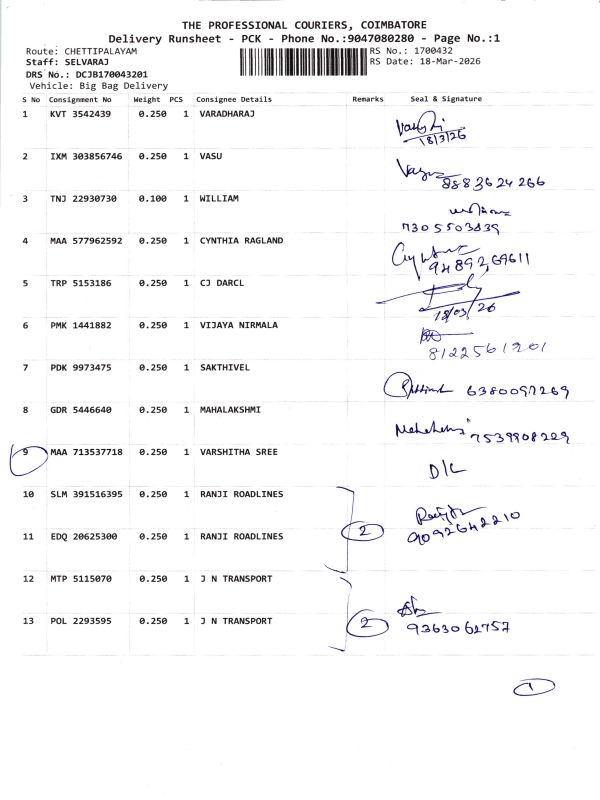 THE PROFESSIONAL COURIERS, COIMBATORE
Delivery Runsheet - PCK - Phone No.:9047080280 - Page No.:1
Route: CHETTIPALAYAM
RS No.: 1700432
Staff: SELVARAJ
RS Date: 18-Mar-2026
DRS No.: DCJB170043201
Vehicle: Big Bag Delivery
S No Consignment No Weight PCS Consignee Details Remarks Seal & Signature
1 KVT 3542439 0.250 1 VARADHARAJ
18/3/26
2 IXM 303856746 0.250 1 VASU
8883624266
3 TNJ 22930730 0.100 1 WILLIAM
7305503839
4 MAA 577962592 0.250 1 CYNTHIA RAGLAND
9489269611
5 TRP 5153186 0.250 1 CJ DARCL
18/03/26
6 PMK 1441882 0.250 1 VIJAYA NIRMALA
8122561201
7 PDK 9973475 0.250 1 SAKTHIVEL
6380097269
8 GDR 5446640 0.250 1 MAHALAKSHMI
7539908229
9 MAA 713537718 0.250 1 VARSHITHA SREE D/L
10 SLM 391516395 0.250 1 RANJI ROADLINES
2 9092642210
11 EDQ 20625300 0.250 1 RANJI ROADLINES
12 MTP 5115070 0.250 1 J N TRANSPORT
13 POL 2293595 0.250 1 J N TRANSPORT 2 9363062757
1